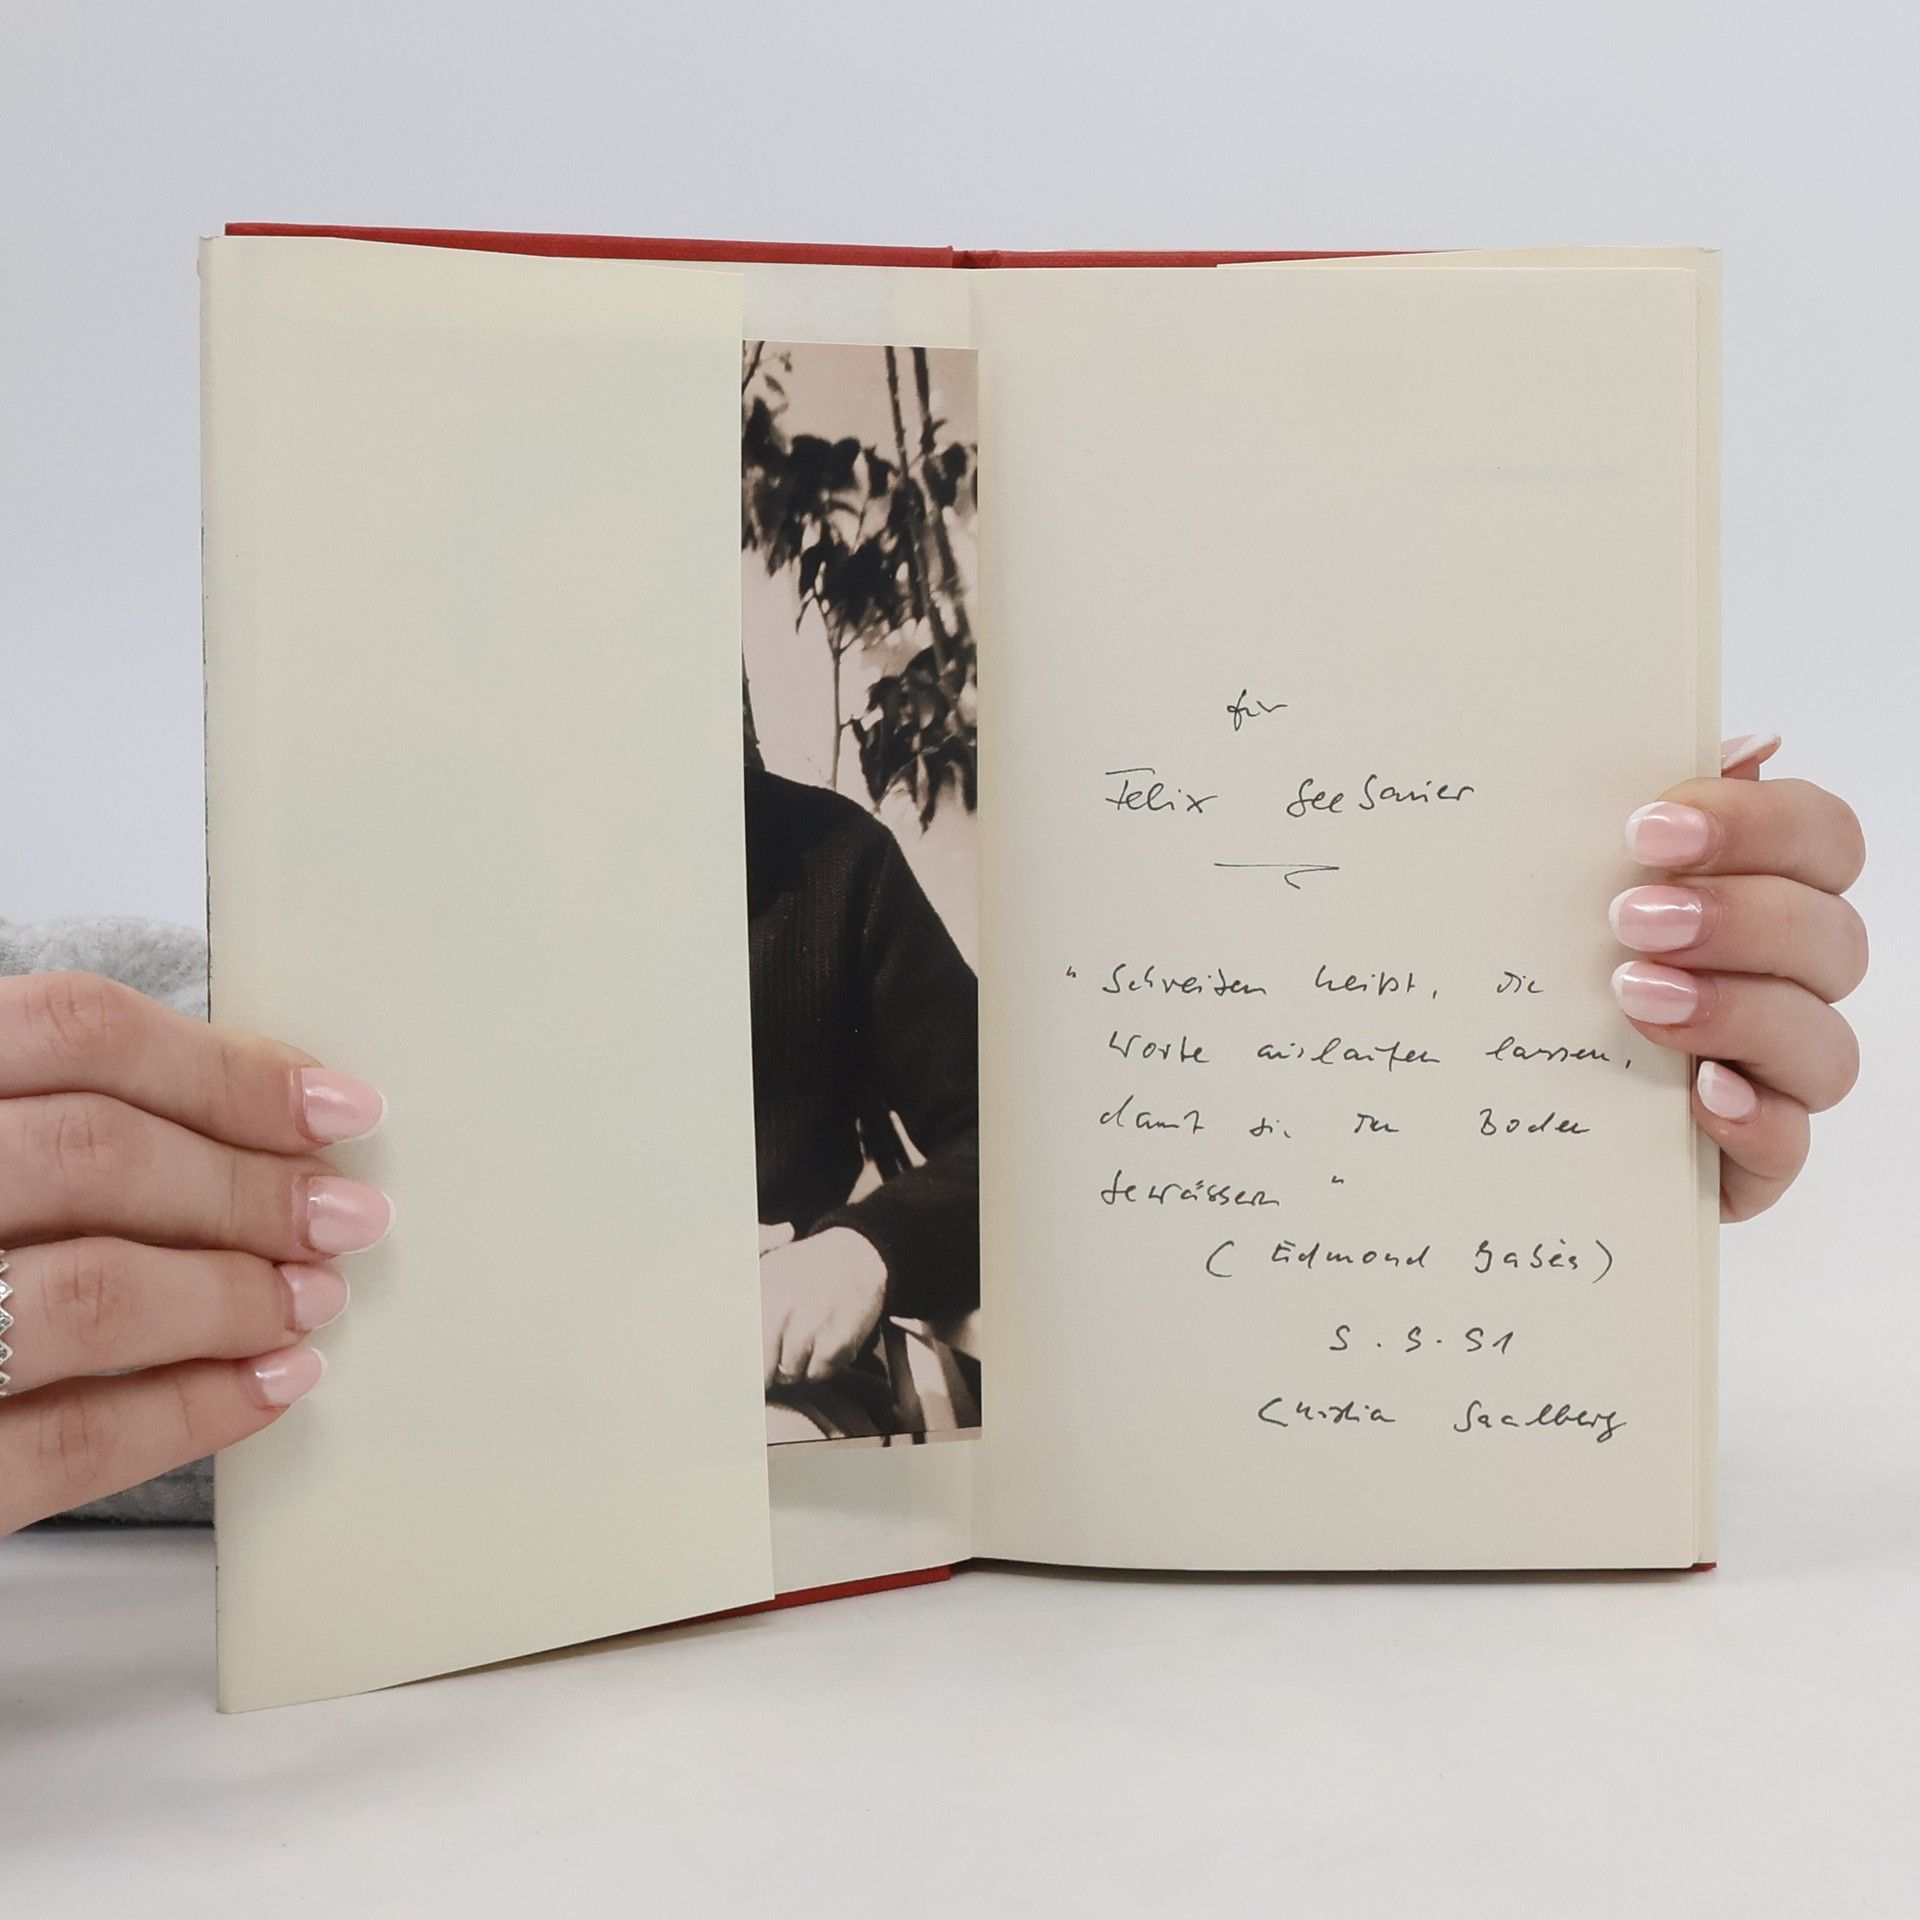 für
Felix
"Schreiben heißt, die
Worte auslaufen lassen,
damit sie den Boden
bewässern"
(Edmond Jabès)
Christian Saalberg